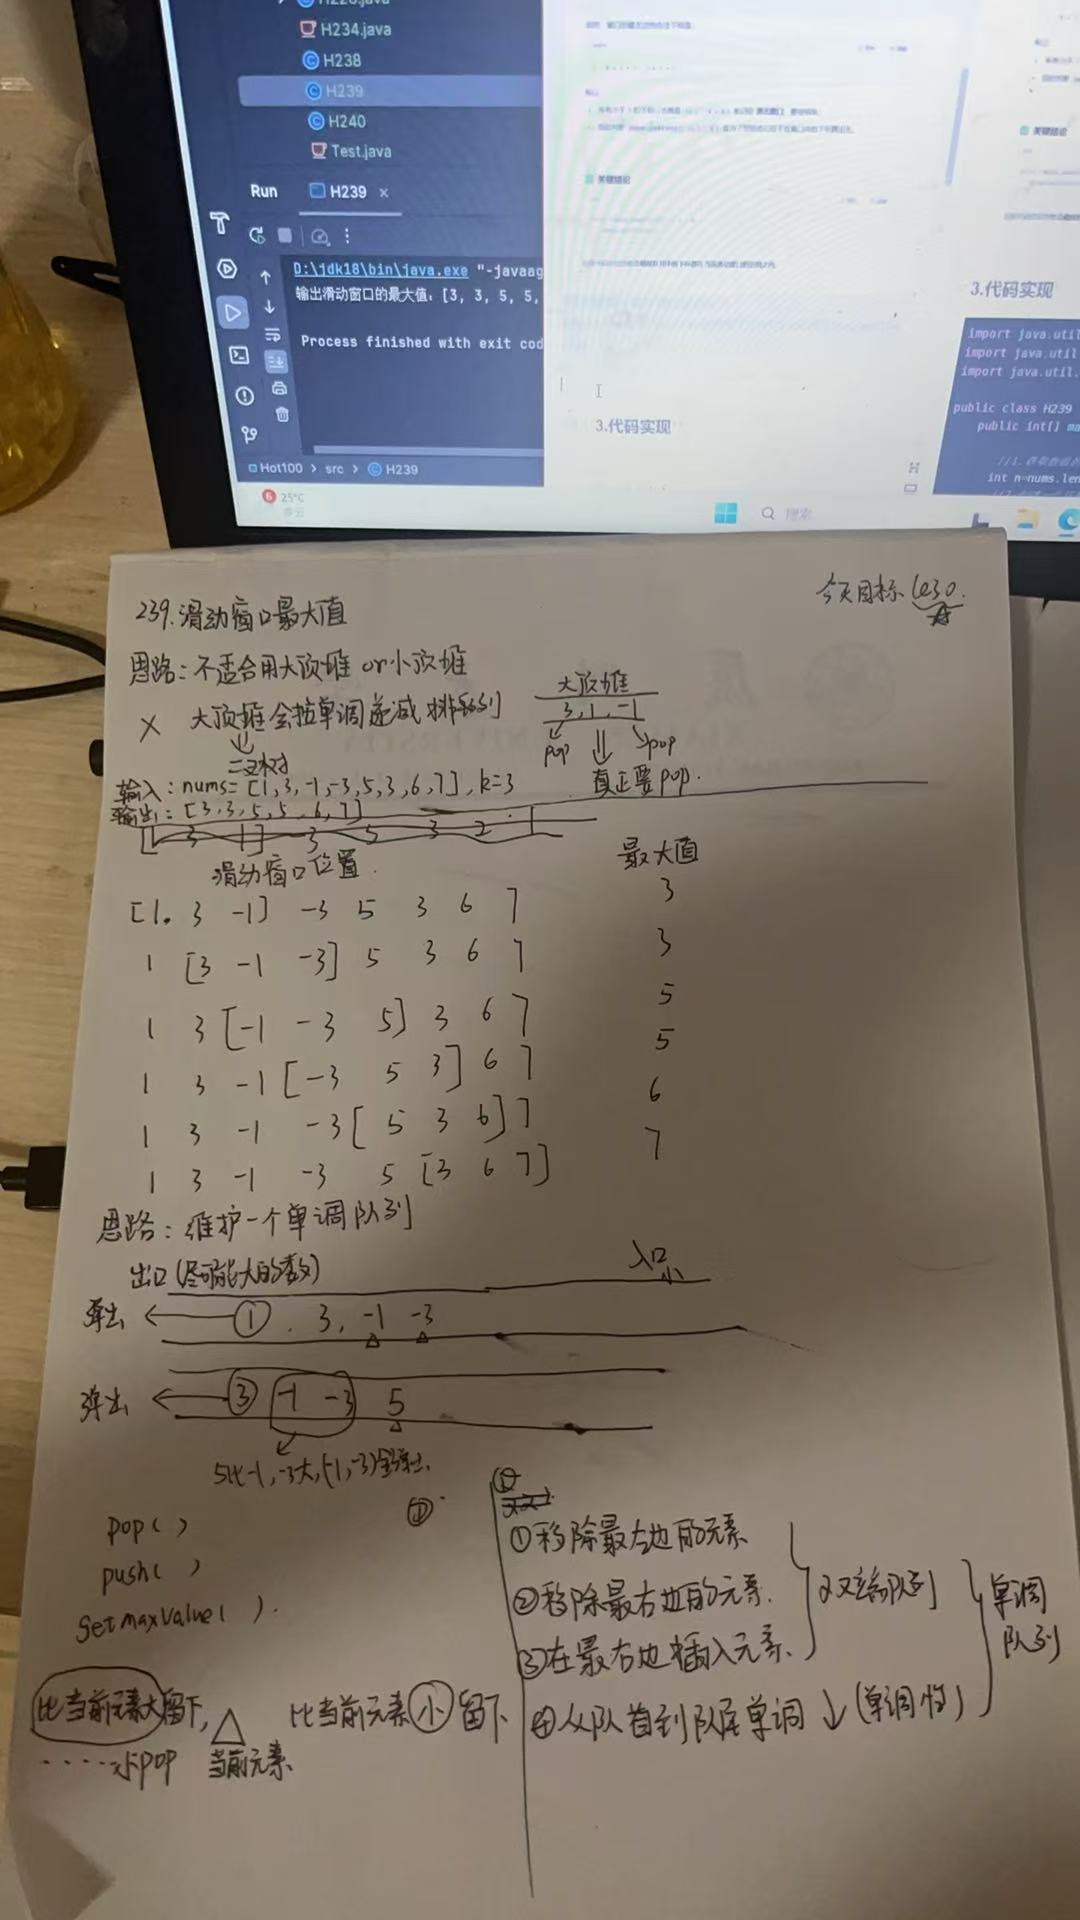 H234.java
H238
H239
H240
Test.java
Run
H239
D:\jdk18\bin\java.exe "-javaag
输出滑动窗口的最大值：[3, 3, 5, 5,
Process finished with exit cod
Hot100 > src > H239
25°C
多云
关键结论
3.代码实现
搜索
关键结论
3.代码实现
import java.util
import java.util
import java.util.
public class H239
public int[] ma
int n=nums.len
今天目标
239.滑动窗口最大值
思路：不适合用大顶堆 or 小顶堆
× 大顶堆会按单调递减排列
二叉树
大顶堆
3, 1, -1
pop
pop
真正要pop.
输入：nums=[1,3,-1,-3,5,3,6,7], k=3
输出：[3,3,5,5,6,7]
滑动窗口位置
最大值
[1. 3 -1] -3 5 3 6 7 3
1 [3 -1 -3] 5 3 6 7 3
1 3 [-1 -3 5] 3 6 7 5
1 3 -1 [-3 5 3] 6 7 5
1 3 -1 -3 [5 3 6] 7 6
1 3 -1 -3 5 [3 6 7] 7
思路：维护一个单调队列
出口(尽可能大的数)
入口
小
弹出 ← ① . 3, -1 -3
弹出 ← ③ -1 -3 5
5比-1,-3大,(-1,-3)全弹出
pop( )
push( )
getmaxvalue( ).
①移除最左边的元素
②移除最右边的元素.
③在最右边插入元素.
双端队列
④从队首到队尾单调↓(单调性)
单调
队列
比当前元素大留下, △ 比当前元素小留下
……小pop 当前元素